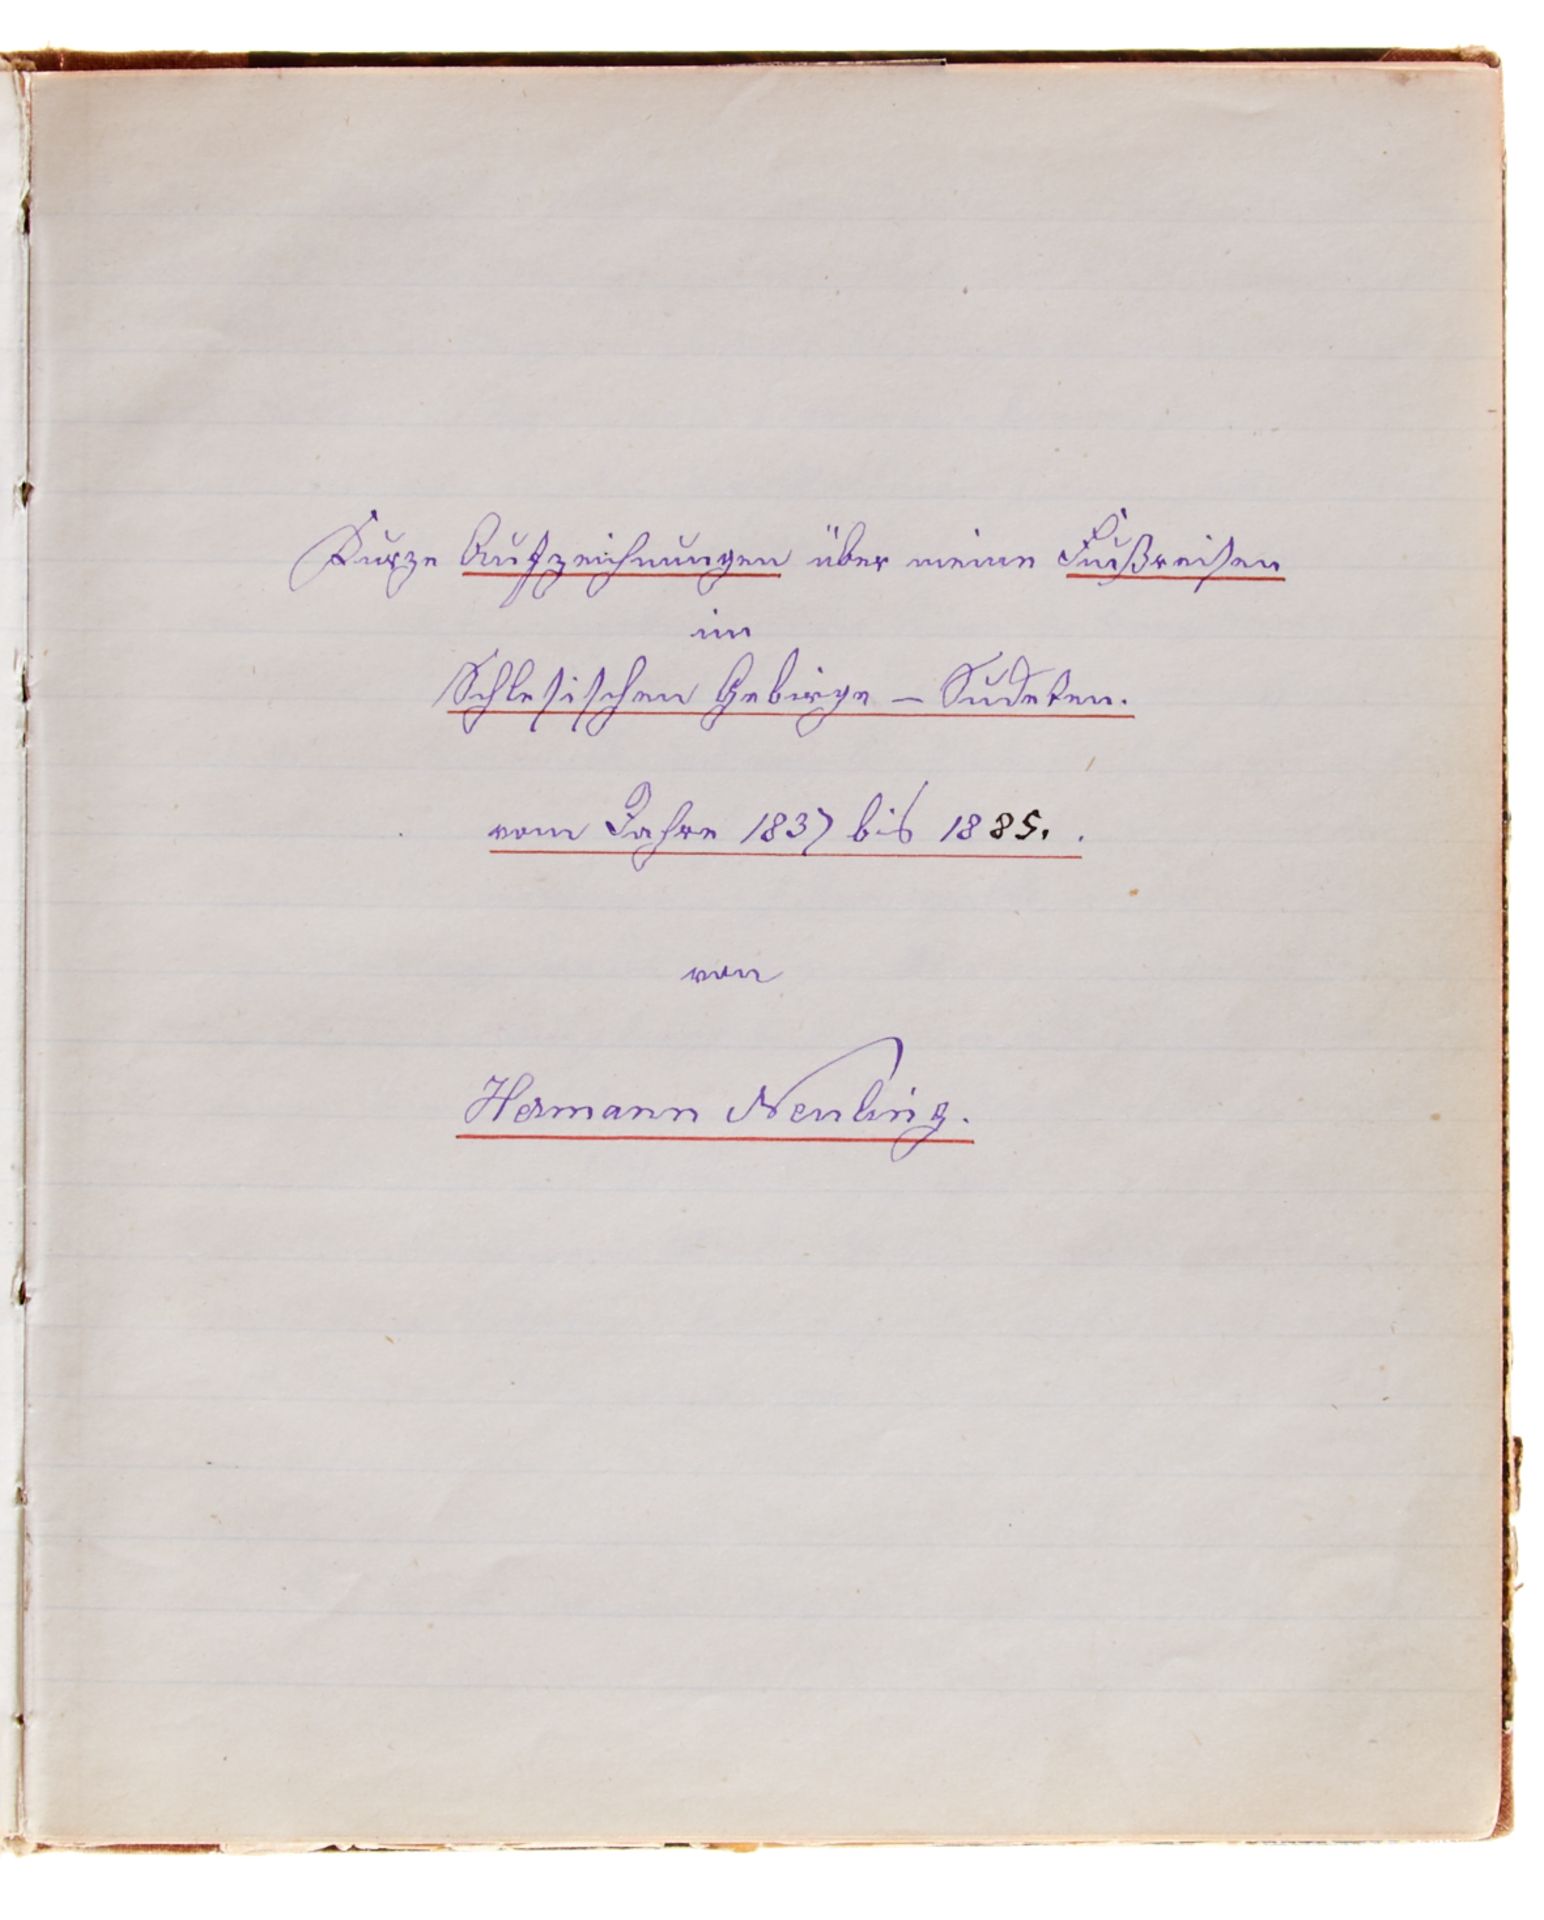 Kurze Aufzeichnungen über meine Fußreisen
im
Schlesischen Gebirge – Sudeten.
vom Jahre 1837 bis 1885.
von
Hermann Neuling.